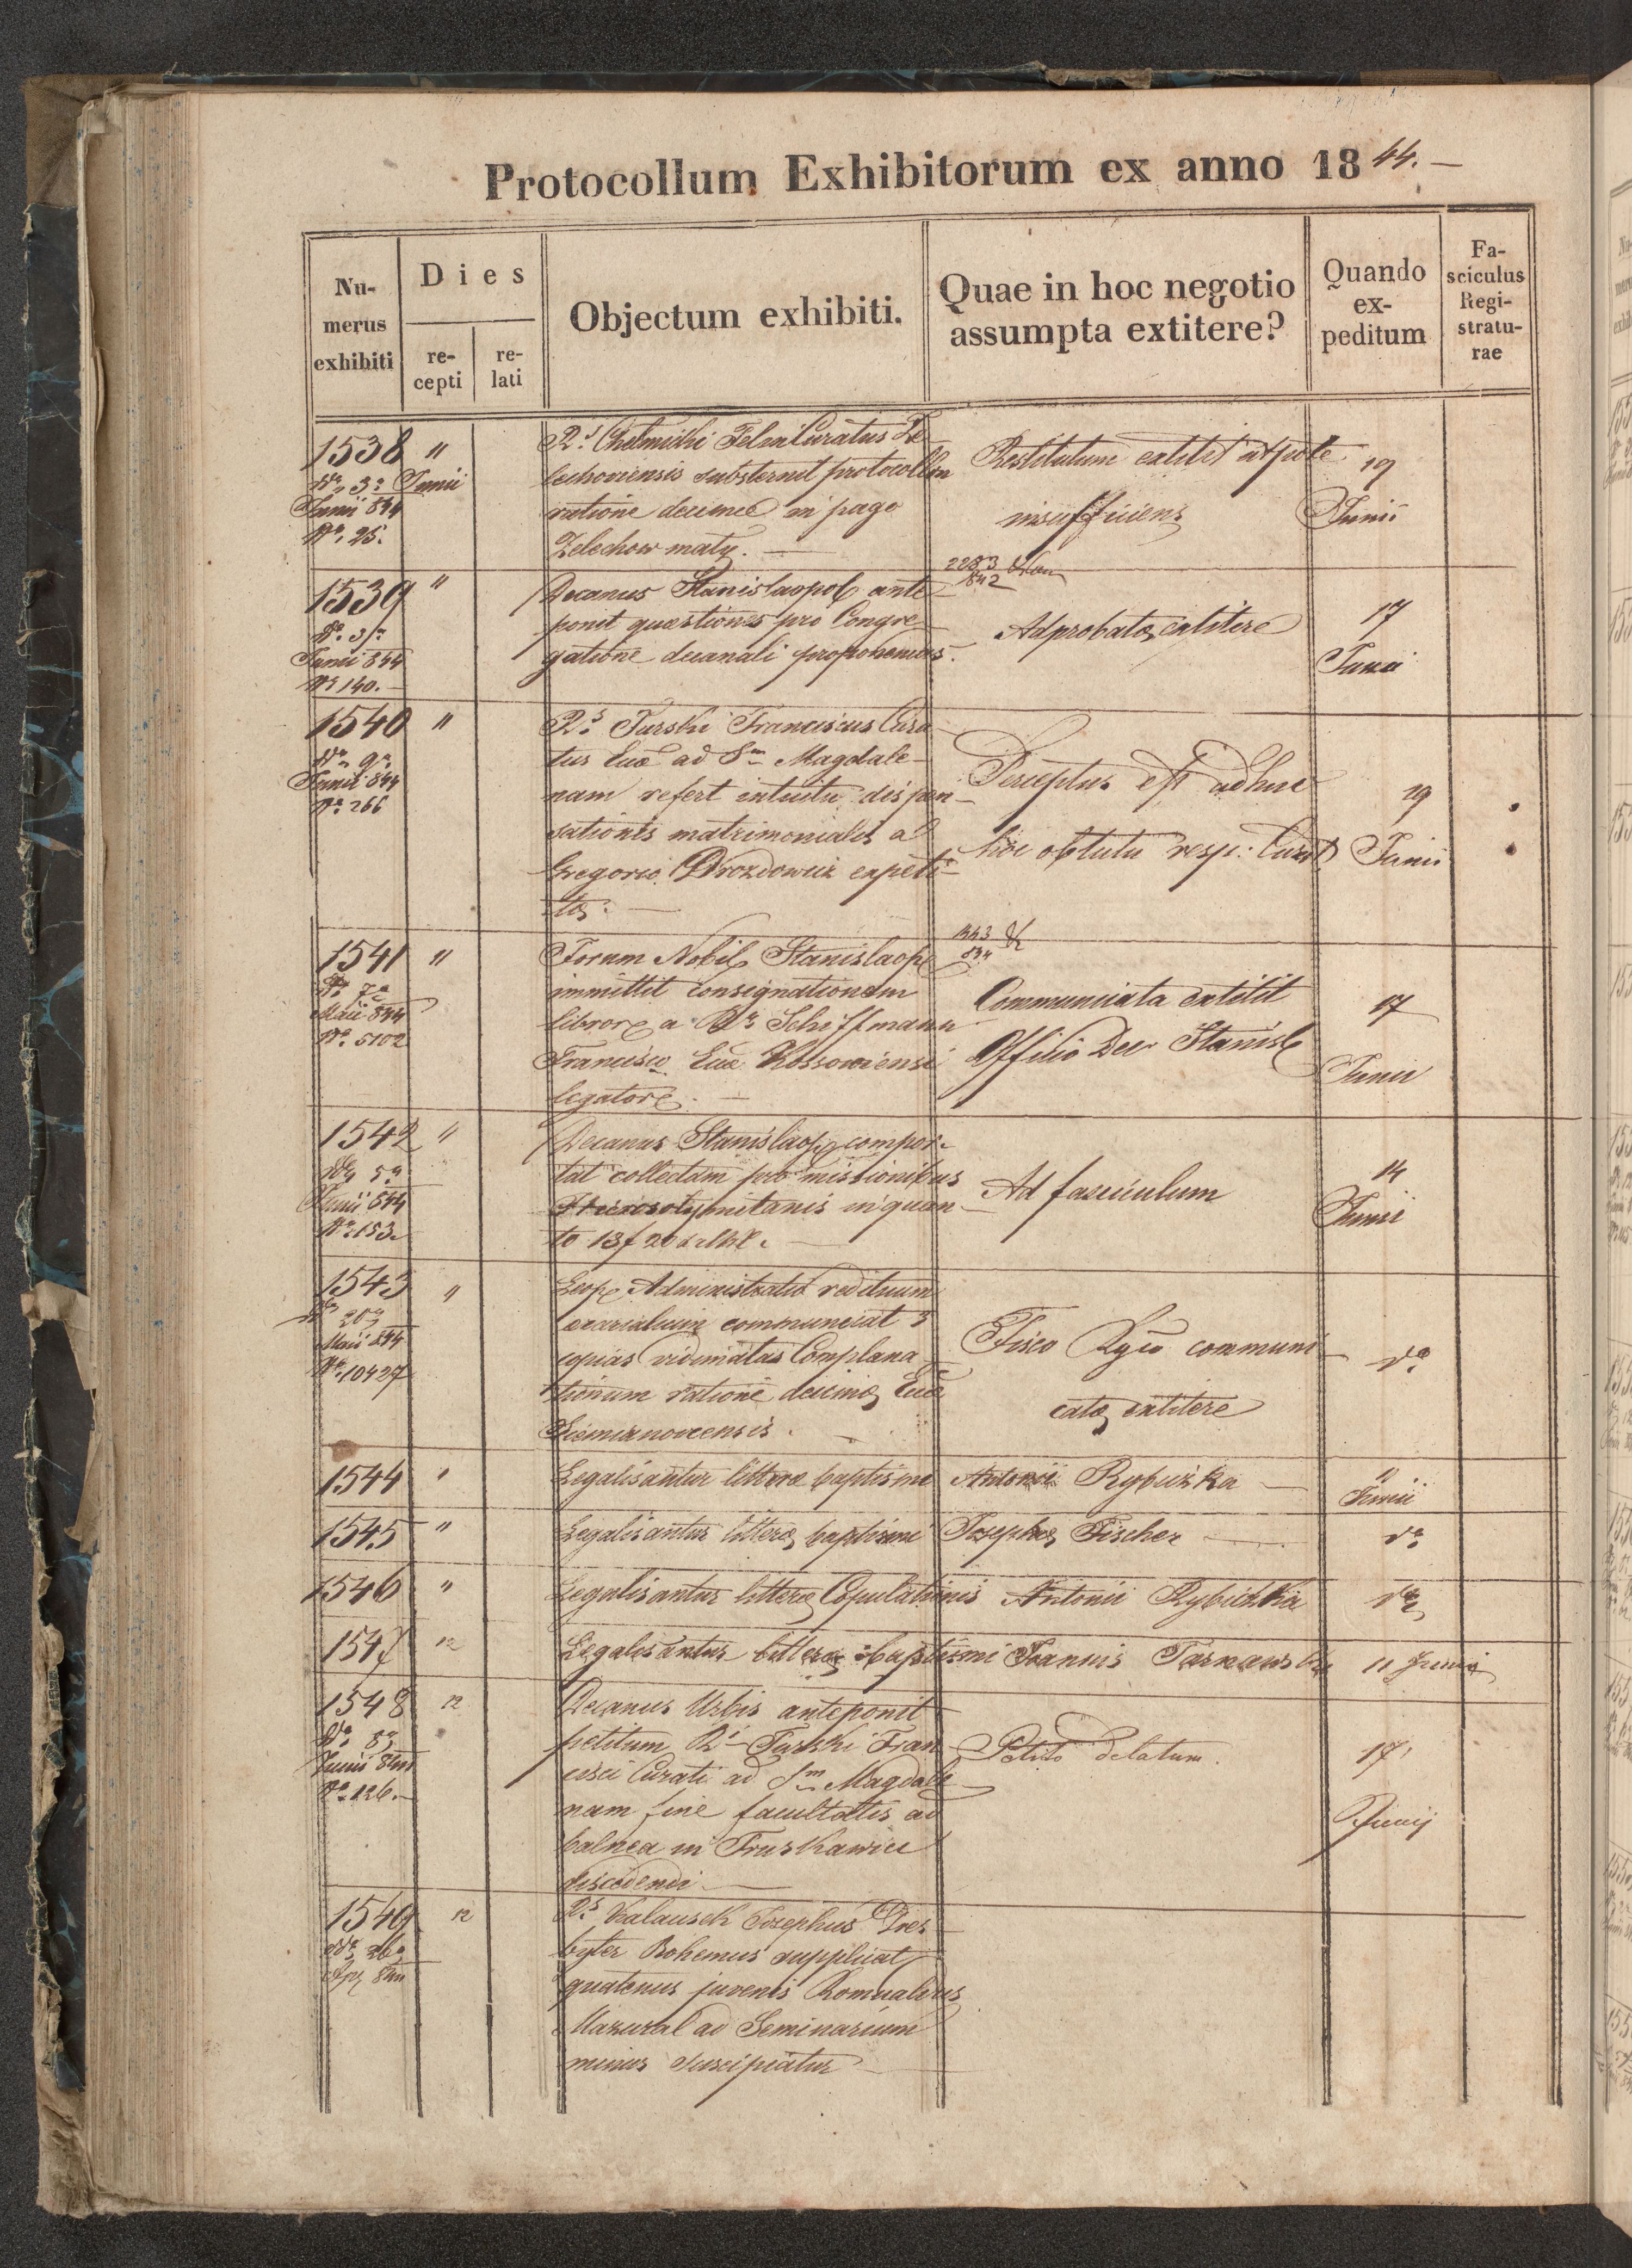 Protocollum Exhibitorum ex anno 1844.
Numerus exhibiti
Dies
recepti
relati
Objectum exhibiti.
Quae in hoc negotio assumpta extitere?
Quando expeditum
Fasciculus Registraturae
1538 "
Junii
Junii 844
No 25.
Rs Chelmicki Curatus Ze-
lechoviensis substernit protocollum
ratione decimae in pago
Zelechow maly.
Restitutum extitit utpote
insufficiens
19
Junii
1539 "
Junii 844
No 140.
Decanus Stanislaopol ante
ponit quaestiones pro Congre-
gatione decanali proponendas.
2283
842
Adprobatae extitere
17
Junii
1540 "
dto 9a
Junii 844
No 266
Rs Turski Franciscus Cura
tus Ecclae ad Sm Magdale-
nam refert intuitu dispen-
sationis matrimonialis a
Gregorio Drozdowicz expeti-
tae.
Perceptus est adhuc
hoc obtutu resp: Curat
19
Junii
1541 "
dto 7a
Maii 844
No 5102
Forum Nobil Stanislaop
immittit consignationem
libror a Rs Schiffmann
Francisco Ecclae Kossoviensi
legator.
Communicata extitit
Officio Dec Stanisl
17
Junii
1542 "
dto 5a
Junii 844
No 153.
Decanus Stanislaop compor-
tat collectam pro missionibus
Hierosolymitanis in quan-
to 13f 20
Ad fasciculum
14
Junii
1543 "
dto 20a
Maii 844
No 10427
Leop Administratio redituum
aerarialium communicat 3
copias vidimatas Complana-
tionum ratione decimae Ecclae
Siemianovcensis.
Fisco Rgio communi-
catae extitere
do
1544 "
Legalisantur litterae baptismi Antonii Rybiczka
11
Junii
1545 "
Legalisantur litterae baptismi Josephae Fischer
do
1546 "
Legalisantur litterae Copulationis Antonii Rybiczka
do
1547 12
Legalisantur litterae baptismi Joannis Tarnawski 11 Junii
1548 12
dto 8a
Junii 844
No 126.
Decanus Urbis anteponit
petitum Ri Turski Fran-
cisci Curati ad Sm Magdale-
nam fine facultatis ad
balnea in Truskawiec
discedendi
Petito delatum.
17
Junij
1549 12
dto 26a
Apr 844
Rs Kalausek Josephus Pres-
byter Bohemus supplicat
quatenus juvenis Romualdus
Mazural ad Seminarium
minus suscipiatur